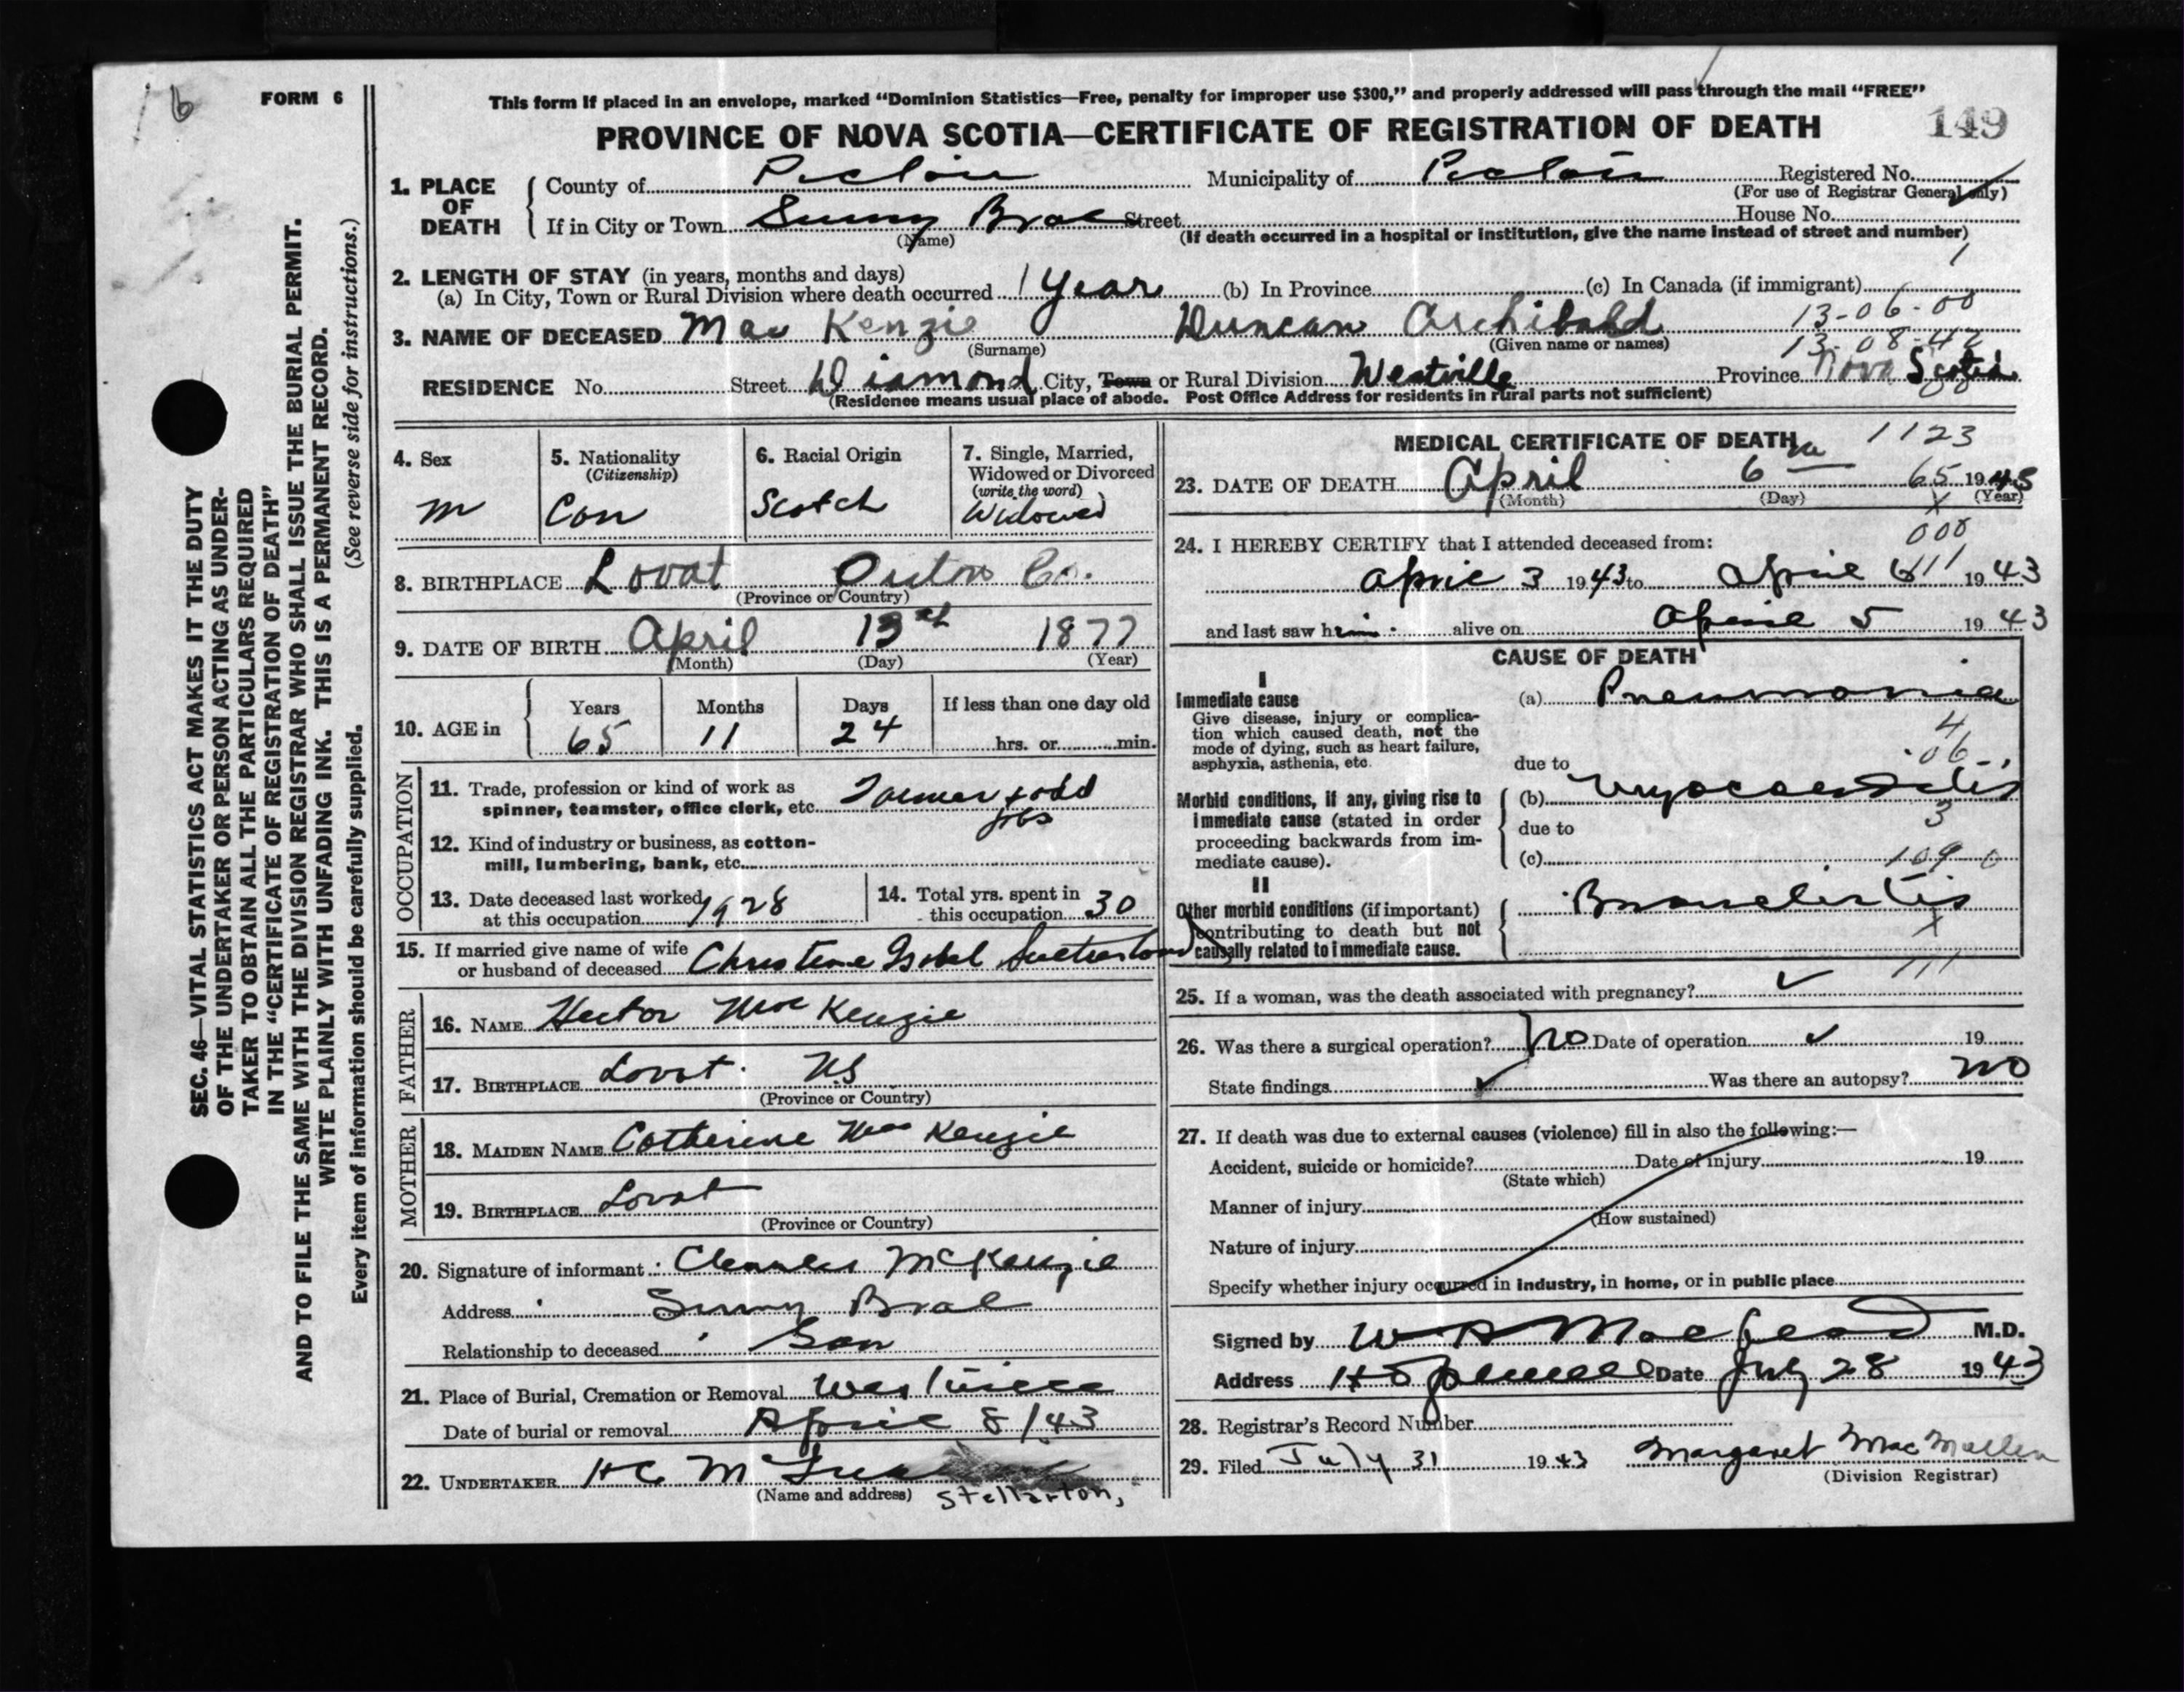 16
FORM 6
This form if placed in an envelope, marked "Dominion Statistics—Free, penalty for improper use $300," and properly addressed will pass through the mail "FREE"
PROVINCE OF NOVA SCOTIA—CERTIFICATE OF REGISTRATION OF DEATH
149
SEC. 46—VITAL STATISTICS ACT MAKES IT THE DUTY
OF THE UNDERTAKER OR PERSON ACTING AS UNDER-
TAKER TO OBTAIN ALL THE PARTICULARS REQUIRED
IN THE "CERTIFICATE OF REGISTRATION OF DEATH"
AND TO FILE THE SAME WITH THE DIVISION REGISTRAR WHO SHALL ISSUE THE BURIAL PERMIT.
WRITE PLAINLY WITH UNFADING INK. THIS IS A PERMANENT RECORD.
Every item of information should be carefully supplied. (See reverse side for instructions.)
1. PLACE OF DEATH
County of Pictou Municipality of Pictou Registered No.
(For use of Registrar General only)
If in City or Town Sunny Brae Street House No.
(Name) (If death occurred in a hospital or institution, give the name instead of street and number)
1
2. LENGTH OF STAY (in years, months and days)
(a) In City, Town or Rural Division where death occurred 1 Year (b) In Province (c) In Canada (if immigrant)
13-06-00
3. NAME OF DECEASED Mac Kenzie Duncan Archibald
(Surname) (Given name or names) 13-08-42
RESIDENCE No. Street Diamond City, Town or Rural Division Westville Province Nova Scotia
(Residence means usual place of abode. Post Office Address for residents in rural parts not sufficient)
4. Sex
M
5. Nationality
(Citizenship)
Can
6. Racial Origin
Scotch
7. Single, Married,
Widowed or Divorced
(write the word)
Widowed
8. BIRTHPLACE Lovat Pictou Co.
(Province or Country)
9. DATE OF BIRTH April 13th 1877
(Month) (Day) (Year)
10. AGE in
Years Months Days If less than one day old
65 11 24 hrs. or min.
OCCUPATION
11. Trade, profession or kind of work as
spinner, teamster, office clerk, etc. Farmer & odd
jobs
12. Kind of industry or business, as cotton-
mill, lumbering, bank, etc.
13. Date deceased last worked
at this occupation 1928
14. Total yrs. spent in
this occupation 30
15. If married give name of wife
or husband of deceased Christene Isobel Sutherland
FATHER
16. NAME Hector MacKenzie
17. BIRTHPLACE Lovat NS
(Province or Country)
MOTHER
18. MAIDEN NAME Catherine MacKenzie
19. BIRTHPLACE Lovat
(Province or Country)
20. Signature of informant: Charles McKenzie
Address Sunny Brae
Relationship to deceased Son
21. Place of Burial, Cremation or Removal Westville
Date of burial or removal April 8/43
22. UNDERTAKER H C
(Name and address) Stellarton,
MEDICAL CERTIFICATE OF DEATH
1123
23. DATE OF DEATH April 6 65 1943
(Month) (Day) (Year)
X
000
24. I HEREBY CERTIFY that I attended deceased from:
April 3 1943 to April 1943
and last saw him alive on April 5 1943
CAUSE OF DEATH
I
Immediate cause
Give disease, injury or complica-
tion which caused death, not the
mode of dying, such as heart failure,
asphyxia, asthenia, etc.
(a) Pneumonia
4
06
due to
Morbid conditions, if any, giving rise to
immediate cause (stated in order
proceeding backwards from im-
mediate cause).
(b) Myocarditis
3
due to
(c) 109 0
II
Other morbid conditions (if important)
contributing to death but not
causally related to immediate cause.
Bronchitis
X
111
25. If a woman, was the death associated with pregnancy?
26. Was there a surgical operation? No Date of operation 19
State findings Was there an autopsy? No
27. If death was due to external causes (violence) fill in also the following:—
Accident, suicide or homicide? Date of injury 19
(State which)
Manner of injury
(How sustained)
Nature of injury
Specify whether injury occurred in industry, in home, or in public place
Signed by W A MacLeod M.D.
Address Hopewell Date July 28 1943
28. Registrar's Record Number
29. Filed July 31 1943 Margaret MacMullen
(Division Registrar)